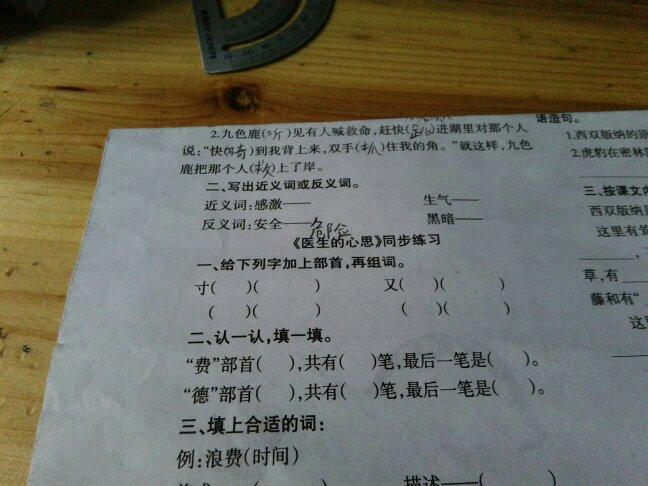 2.九色鹿(听)见有人喊救命,赶快(跳)进湖里对那个人
说:“快(骑)到我背上来,双手(抓)住我的角。”就这样,九色
鹿把那个人(救)上了岸。
二、写出近义词或反义词。
近义词:感激—— 生气——
反义词:安全——危险 黑暗——
《医生的心思》同步练习
一、给下列字加上部首,再组词。
寸( )( ) 又( )( )
( )( ) ( )( )
二、认一认,填一填。
“费”部首( ),共有( )笔,最后一笔是( )。
“德”部首( ),共有( )笔,最后一笔是( )。
三、填上合适的词:
例:浪费(时间)
描述——(
语造句。
1.西双版纳的
2.虎豹在密林
三、按课文
西双版纳是
这里有
草,有
藤和有“
这